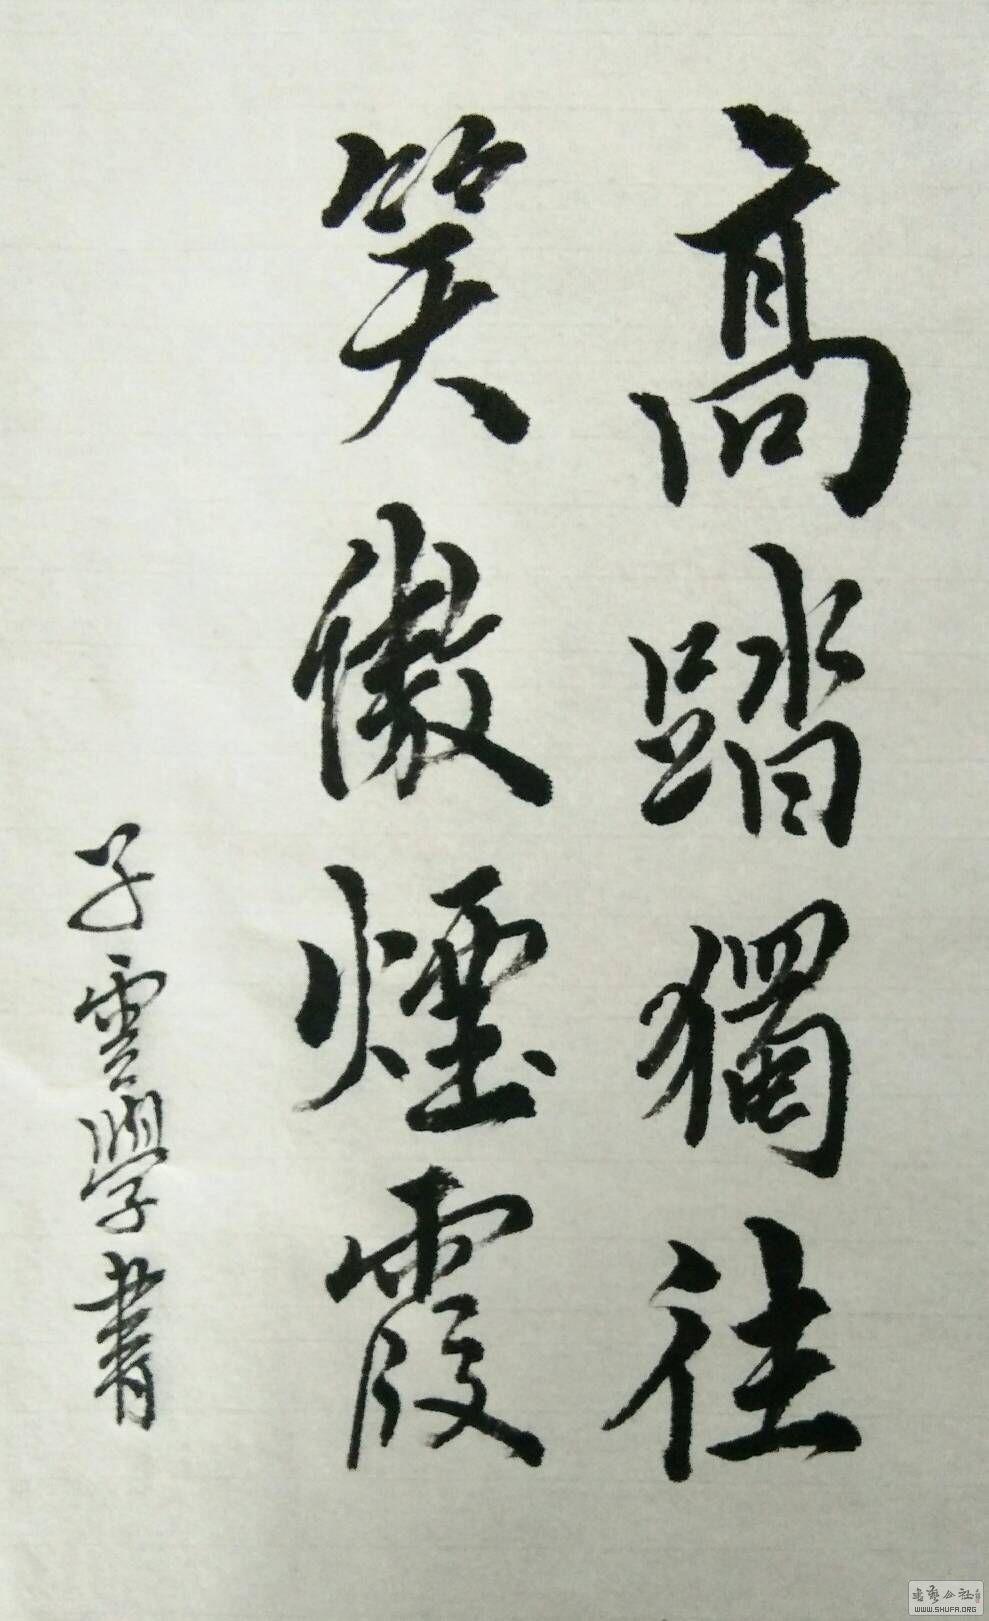 高踏獨往
笑傲煙霞
子雲學書
書藝公社
WWW.SHUFA.ORG